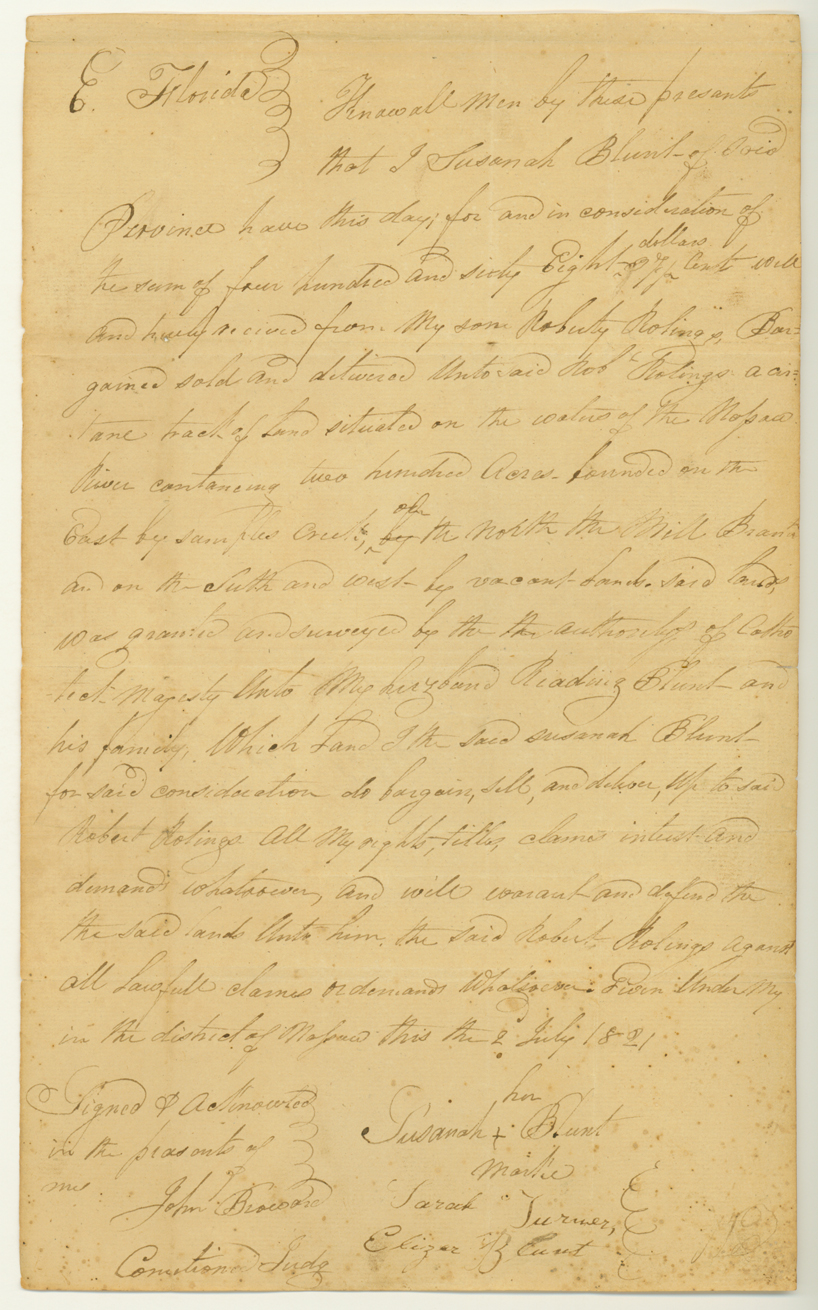 E. Florida
Know all Men by these presants
that I Susanah Blunt of Said
Province have this day, for and in consideration of
dollars
the sum of four hundred and sixty Eight 97/ Cent well
And hurly received from My son Roberty Rolings, Bar=
gained sold and delivered Unto said Robt Rolings a cir=
tane track of Land situated on the waters of the Nassaw
River contancing two hundred Acres bounded on the
on
East by samples Creek, by the North the Mill Branch
and on the Suth and west by vacant Land. said lands,
was granted and surveyed by the the authority of Catho
lick Majesty Unto My huzband Reading Blunt and
his family, Which Land I the said susanah Blunt
for said consideration do bargain, sell, and deliver, Up to said
Robert Rolings All My rights, titles, clames intrust and
demands whatsoever, and will warant and defend the
the said lands Unto him, the said Robert Rolings against
all Lawfull clames or demands Whatsoever. Given Under My
in the district of Nassaw this the 2 July 1821
Signed & Acknowled
in the prasents of
me
John Broward
Comitioned Judg
her
Susanah + Blunt
Marke
Sarah Turner,
Elizar Blunt